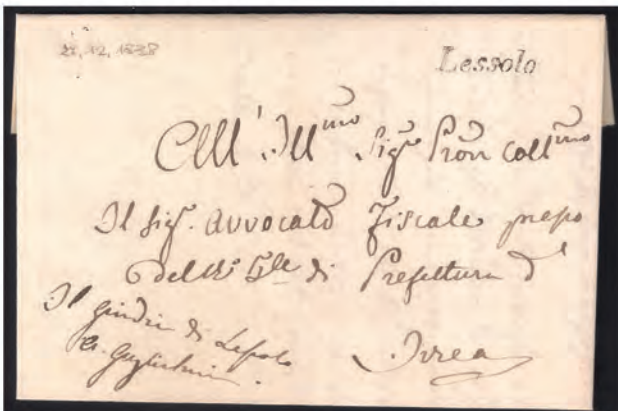 22.12.1838
Lessolo
All' Ill.mo Sig.r Pron Coll.mo
Il Sig.r Avvocato Fiscale presso
di Prefettura d'
Ivrea
Il Giudice di Lessolo